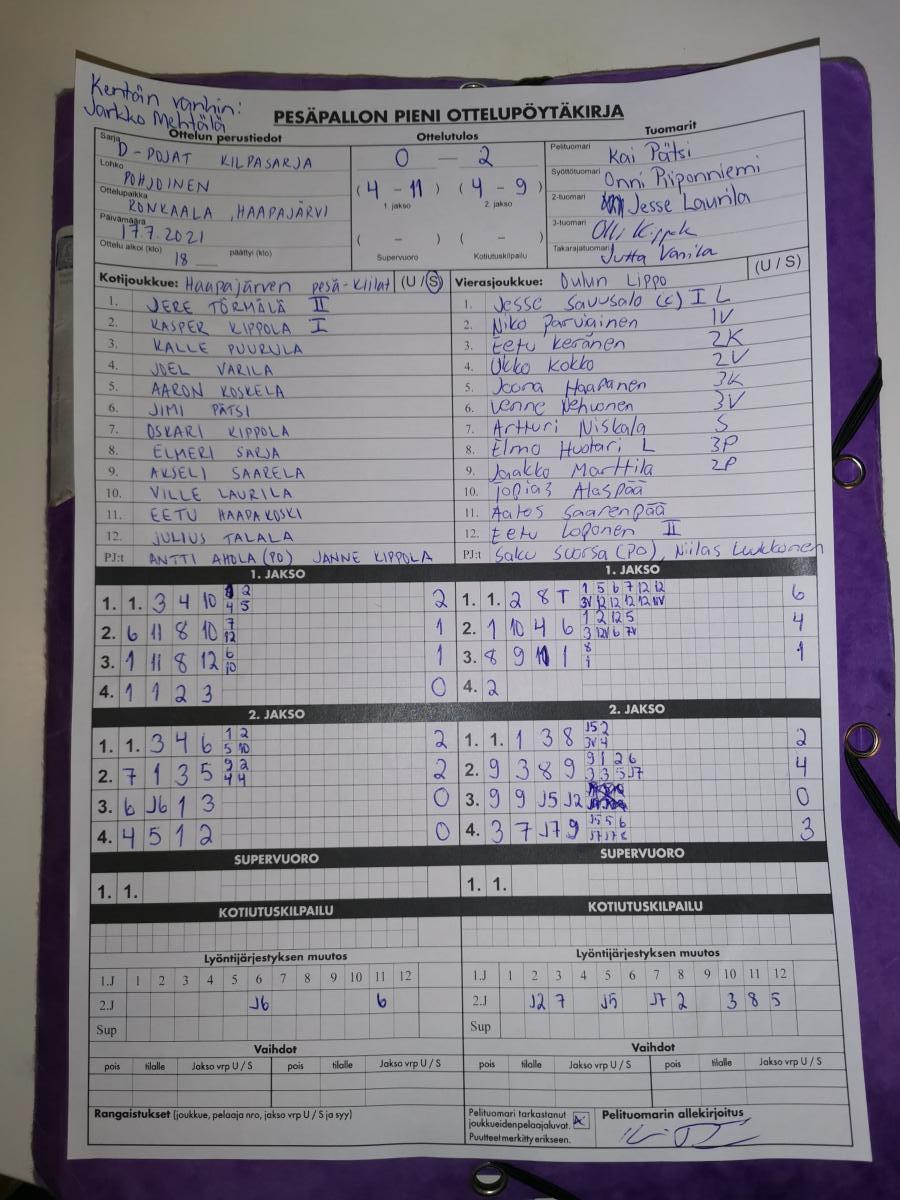 Kentän vanhin:
Jarkko Mehtälä
PESÄPALLON PIENI OTTELUPÖYTÄKIRJA
Ottelun perustiedot
Sarja D-POJAT KILPASARJA
Lohko POHJOINEN
Ottelupaikka RONKAALA, HAAPAJÄRVI
Päivämäärä 17.7.2021
Ottelu alkoi (klo) 18 päättyi (klo)
Ottelutulos
0 - 2
(4 - 11) (4 - 9)
1. jakso 2. jakso
( - ) ( - )
Supervuoro Kotiutuskilpailu
Tuomarit
Pelituomari Kai Pätsi
Syöttötuomari Onni Piiponniemi
2-tuomari Jesse Laurila
3-tuomari Olli
Takarajatuomari Jutta Vanila
Kotijoukkue: Haapajärven pesä-kiilat (U / S)
1. JERE TÖRMÄLÄ II
2. KASPER KIPPOLA I
3. KALLE PUURULA
4. JOEL VARILA
5. AARON KOSKELA
6. JIMI PÄTSI
7. OSKARI KIPPOLA
8. ELMERI SARJA
9. AKSELI SAARELA
10. VILLE LAURILA
11. EETU HAAPAKOSKI
12. JULIUS TALALA
PJ:t ANTTI AHOLA (PO) JANNE KIPPOLA
Vierasjoukkue: Oulun Lippo (U / S)
1. Jesse Savusalo (c) I L
2. Niko Parviainen 1V
3. Eetu Keränen 2K
4. Ukko Kokko 2V
5. Joona Haapanen 3K
6. Venne Nehvonen 3V
7. Artturi Niskala S
8. Elmo Huotari L 3P
9. Jaakko Marttila 2P
10. Topias Alaspää
11. Aatos Saarenpää
12. Eetu Loponen II
PJ:t Saku Suorsa (PO), Niilas Luukkonen
1. JAKSO
1. 1. 3 4 10 2
4 5 2
2. 6 11 8 10 7
12 1
3. 1 11 8 12 6
10 1
4. 1 1 2 3 0
1. JAKSO
1. 1. 2 8 T 1 5 6 7 12 12
3V 12 12 12 12 1V 6
2. 1 10 4 6 1 2 12 5
3 12V 6 7V 4
3. 8 9 1 8
1 1
4. 2
2. JAKSO
1. 1. 3 4 6 1 2
5 10 2
2. 7 1 3 5 9 2
4 4 2
3. 6 J6 1 3 0
4. 4 5 1 2 0
2. JAKSO
1. 1. 1 3 8 J5 2
3V 4 2
2. 9 3 8 9 9 1 2 6
3 3 5 J7 4
3. 9 9 J5 J2 0
4. 3 7 J7 9 J5 5 6
J7 J7 8 3
SUPERVUORO
1. 1.
SUPERVUORO
1. 1.
KOTIUTUSKILPAILU
KOTIUTUSKILPAILU
Lyöntijärjestyksen muutos
1.J 1 2 3 4 5 6 7 8 9 10 11 12
2.J J6 6
Sup
Lyöntijärjestyksen muutos
1.J 1 2 3 4 5 6 7 8 9 10 11 12
2.J J2 7 J5 J7 2 3 8 5
Sup
Vaihdot
pois tilalle Jakso vrp U / S pois tilalle Jakso vrp U / S
Vaihdot
pois tilalle Jakso vrp U / S pois tilalle Jakso vrp U / S
Rangaistukset (joukkue, pelaaja nro, jakso vrp U / S ja syy)
Pelituomari tarkastanut
joukkueidenpelaajaluvat. X
Puutteet merkitty erikseen.
Pelituomarin allekirjoitus